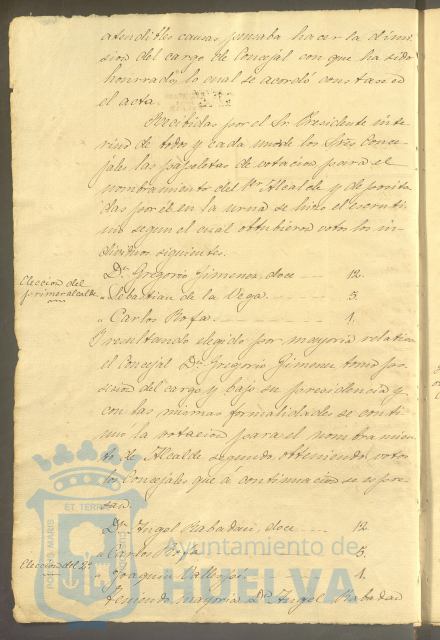 atendibles causas pensaba hacer la dimi-
sion del cargo de Concejal con que ha sido
honrrado, lo cual se acordó constase en
el acta.
Recibidas por el Sr. Presidente inte-
rino de todos y cada uno de los Sres Conce-
jales las papeletas de votacion para el
nombramiento del 1er Alcalde y deposita-
das por él en la urna se hizo el escruti-
nio segun el cual obtubieron votos los in-
dividuos siguientes.
Eleccion del
primer alcalde
Dn. Gregorio Jimenez, doce 12.
" Sebastian de la Vega 5.
" Carlos Rofa 1.
Y resultando elegido por mayoria relativa
el Concejal Dn. Gregorio Jimenez tomó po-
sesion del cargo y bajo su presidencia y
con las mismas formalidades se conti-
nuó la votacion para el nombramien-
to de Alcalde segundo, obteniendo votos
los Concejales que á continuacion se espre-
san.
Dn. Angel Rabadan, doce 12
" Carlos Rofa 5.
Eleccion del 2º
" Joaquin 1.
Teniendo mayoria Dn. Angel Rabadan
PORTUS MARIS ET TERRAE
Ayuntamiento de
HUELVA